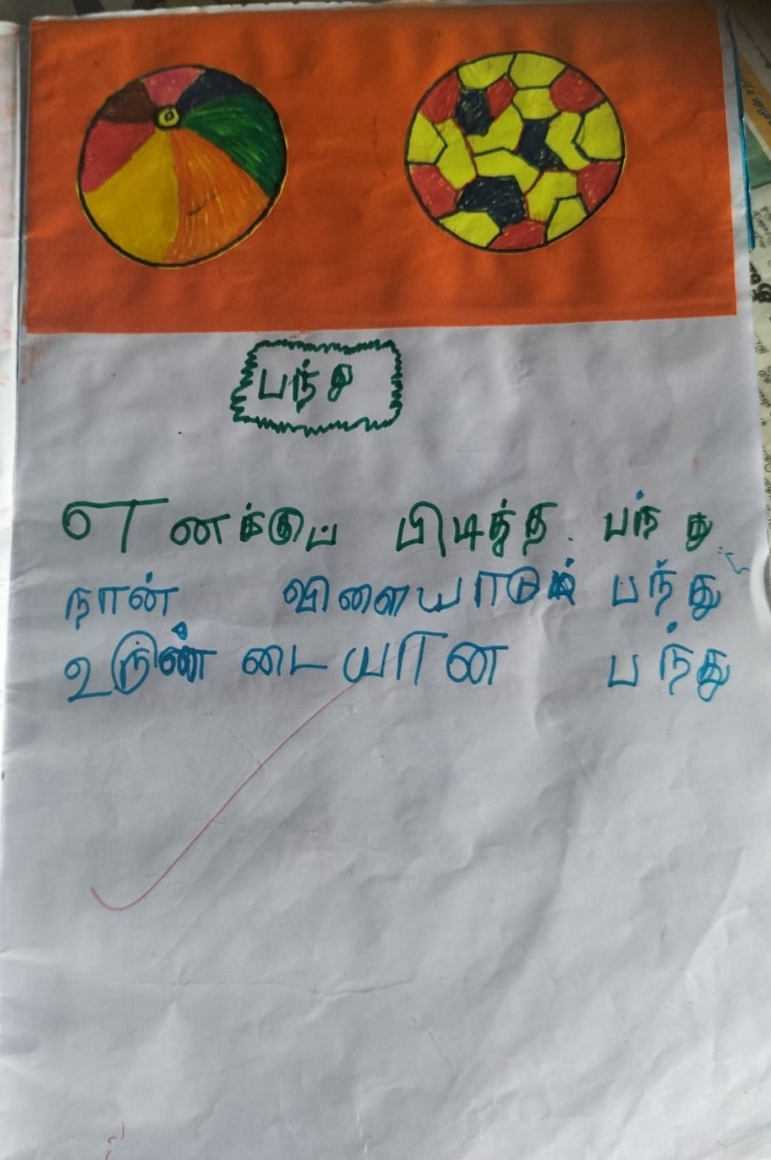 பந்து
எனக்குப் பிடித்த பந்து
நான் விளையாடும் பந்து
உருண்டையான பந்து